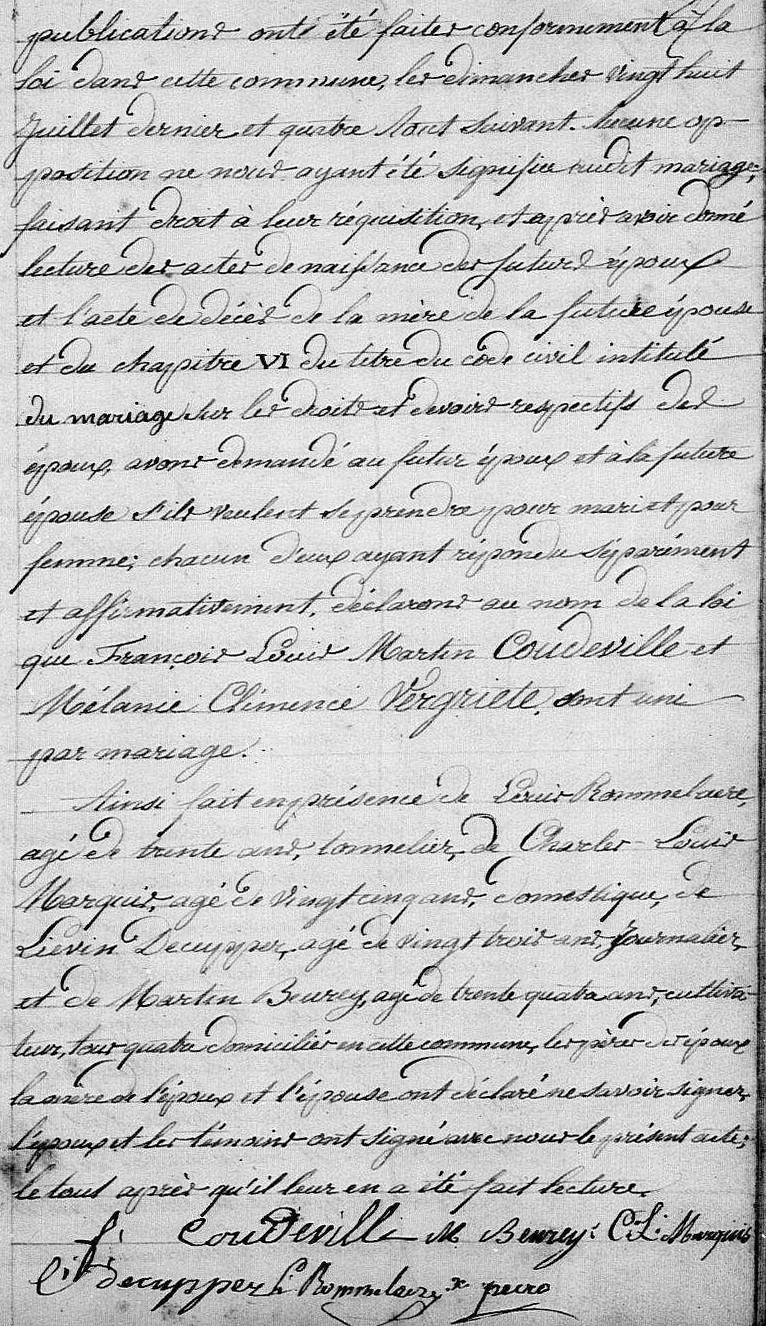 publications ont été faites conformément à la
loi dans cette commune, les dimanches vingt huit
Juillet dernier et quatre Aout suivant. Aucune op-
position ne nous ayant été signifiée audit mariage;
faisant droit à leur réquisition, et après avoir donné
lecture des actes de naissance des futurs époux
et l'acte de décès de la mère de la future épouse
et du chapitre VI du titre du code civil intitulé
du mariage sur les droits et devoirs respectifs des
époux, avons demandé au futur époux et à la future
épouse s'ils veulent se prendre pour mari et pour
femme; chacun d'eux ayant répondu séparément
et affirmativement, déclarons au nom de la loi
que François Louis Martin Coudeville et
Mélanie Clémence Vergriete, sont unis
par mariage.
Ainsi fait en présence de Louis Rommelaere,
agé de trente ans, tonnelier, de Charles-Louis
Marquis, agé de vingt cinq ans, domestique, de
Liévin Decupper, agé de vingt trois ans, Journalier,
et de Martin Beurey, agé de trente quatre ans, cultiva-
teur, tous quatre domiciliés en cette commune, les pères des époux
la mère de l'époux et l'épouse ont déclaré ne savoir signer,
l'époux et les témoins ont signé avec nous le présent acte;
le tout après qu'il leur en a été fait lecture.
f. Coudeville M Beurey C. L. Marquis
Li decupper L Rommelaere